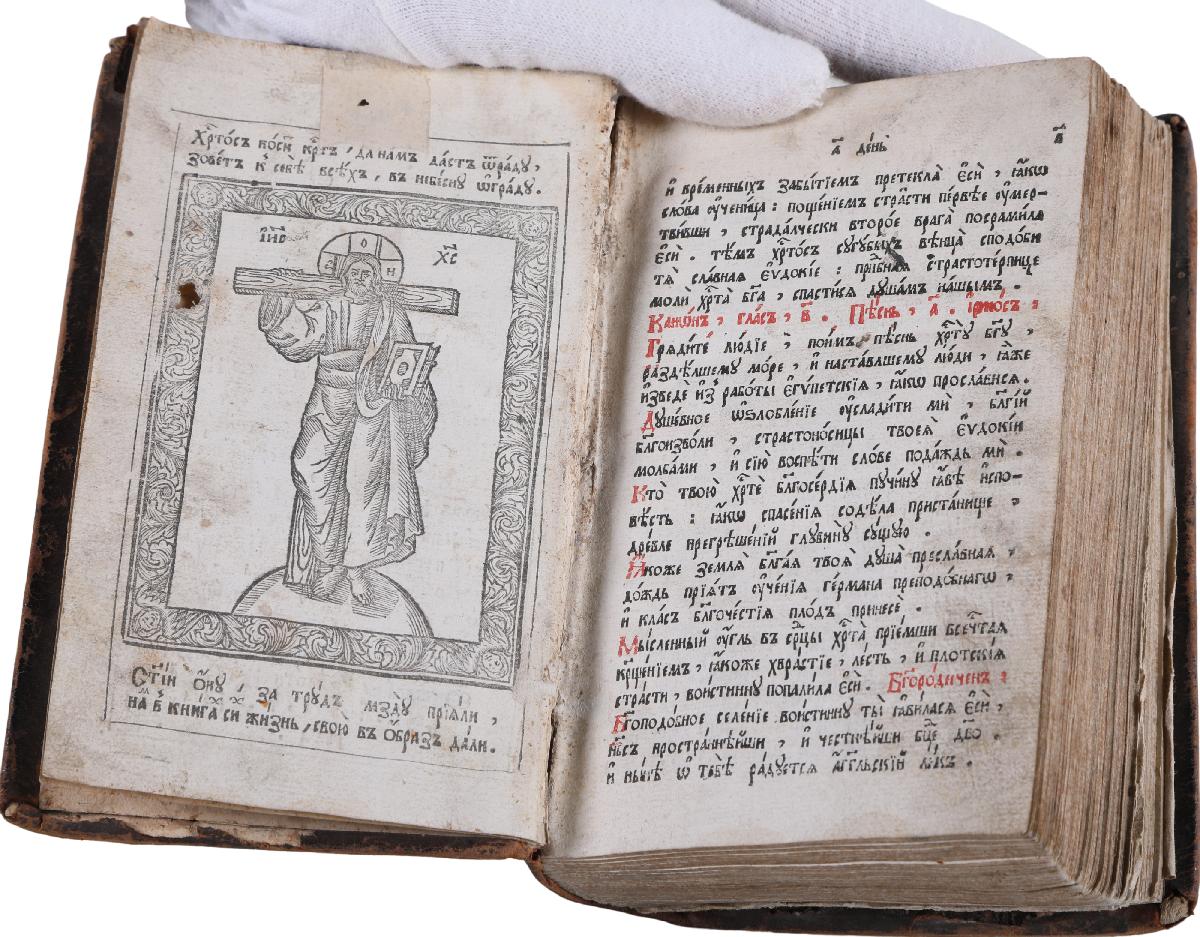 Хрⷭ҇то́съ но́ситъ крⷭ҇тъ , да на́мъ да́стъ ѿра́ду ,
Зове́тъ к̾ себѣ̀ всѣ́хъ , въ небе́сну ѡ҆гра́ду .
І҆И҃С
Х҃С
О Н
Ст҃і́и о҆́ну , за трꙋ́дъ мздꙋ̀ прїѧ́ли ,
на́мъ кни́га си жи́знь , свою̀ въ ѻ҆́бразъ да́ли .
а҃ де́нь
в҃
и҆ вре́менныхъ забы́тїемъ претекла̀ є҆сѝ , ꙗ҆́кѡ
сло́ва ᲂу҆чени́ца : поще́нїемъ стра̑сти пе́рвѣе ᲂу҆мер-
тви́вши , страда́лчески второ́е врага̀ посрами́ла
є҆сѝ . тѣ́мъ хрⷭ҇то́съ сугу́быхъ вѣнца̀ сподо́би
тѧ̀ сла́внаѧ є҆ѵдокі́е : прпⷣбнаѧ страстоте́рпице
молѝ хрⷭ҇та̀ бг҃а , спасти́сѧ душа́мъ на́шымъ .
Канѡ́нъ , гла́съ , в҃ . Пѣ́снь , а҃ . і҆рмо́съ :
Грѧди́те лю́дїе , пои́мъ пѣ́снь хрⷭ҇ту̀ бг҃у ,
раздѣ́лшему мо́ре , и҆ наста́влшему лю́ди , ꙗ҆̀же
и҆зведѐ и҆з̾ рабо́ты є҆гѵ́петскїѧ , ꙗ҆́кѡ просла́висѧ .
Душе́вное ѡ҆ѕлобле́нїе ᲂу҆слади́ти мѝ , бл҃гі́й
бл҃гоизво́ли , страстоно́сицы твоеѧ̀ є҆ѵдокі́и
молба́ми , и҆ сїю̀ воспѣ́ти сло́ве пода́ждь мѝ .
Кто̀ твою̀ хрⷭ҇тѐ бл҃госе́рдїѧ пучи́ну ꙗ҆́вѣ и҆спо-
вѣ́сть : ꙗ҆́кѡ спасе́нїѧ содѣ́ла приста́нище ,
дре́вле прегрѣше́нїй глуби́ну су́щую .
Ꙗ҆́коже землѧ̀ бл҃га́ѧ твоѧ̀ душа̀ пресла́внаѧ ,
до́ждь прїѧ́тъ ᲂу҆че́нїѧ ге́рмана преподо́бнагѡ ,
и҆ кла́съ бл҃гоче́стїѧ пло́дъ принесѐ .
Мы́сленный ᲂу҆́гль въ срⷣцы хрⷭ҇та̀ прїе́мши всечⷭ҇таѧ
крⷳ҇ще́нїемъ , ꙗ҆́коже хвра́стїе , ле́сть , и҆ плотскі̑ѧ
стра̑сти , вои́стинну попали́ла є҆сѝ . Бг҃оро́диченъ :
Бг҃оподо́бное селе́нїе вои́стинну ты̀ ꙗ҆ви́ласѧ є҆сѝ ,
нб҃съ простра́ннѣйши , и҆ честнѣ́йши бцⷣе дв҃о .
и҆ ны́нѣ ѡ҆ тебѣ̀ ра́дуетсѧ а҆́гг҃льскїй ли́къ .